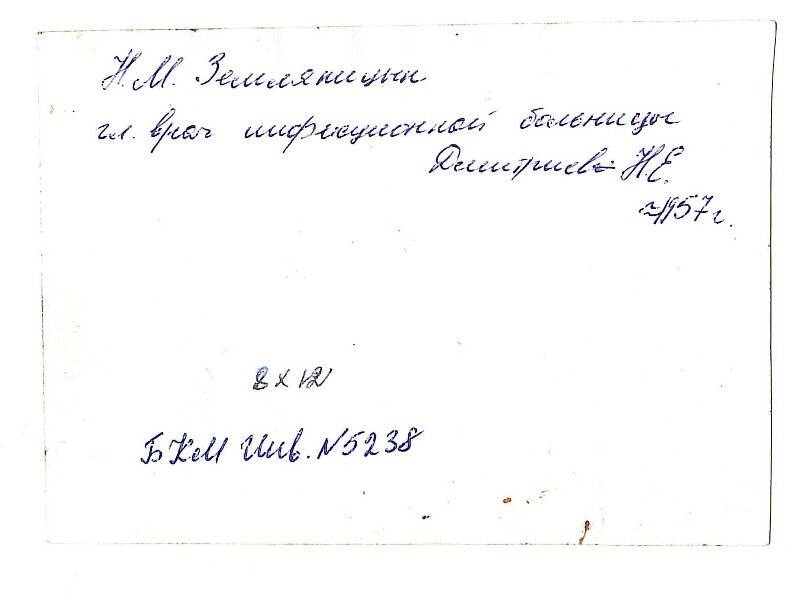 Н.М. Земляницын
гл. врач инфекционной больницы
Дмитриев Н.Е.
≈1957 г.
8 х 12
БКМ Инв. N 5238